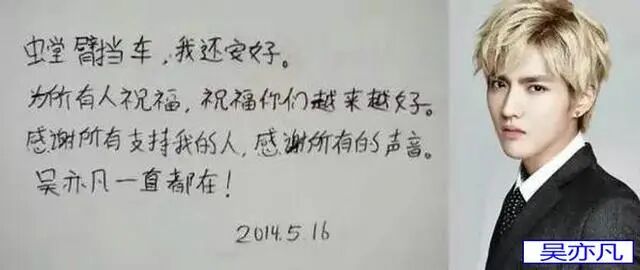 螳臂挡车，我还安好。
为所有人祝福，祝福你们越来越好。
感谢所有支持我的人，感谢所有的声音。
吴亦凡一直都在！
2014.5.16
吴亦凡